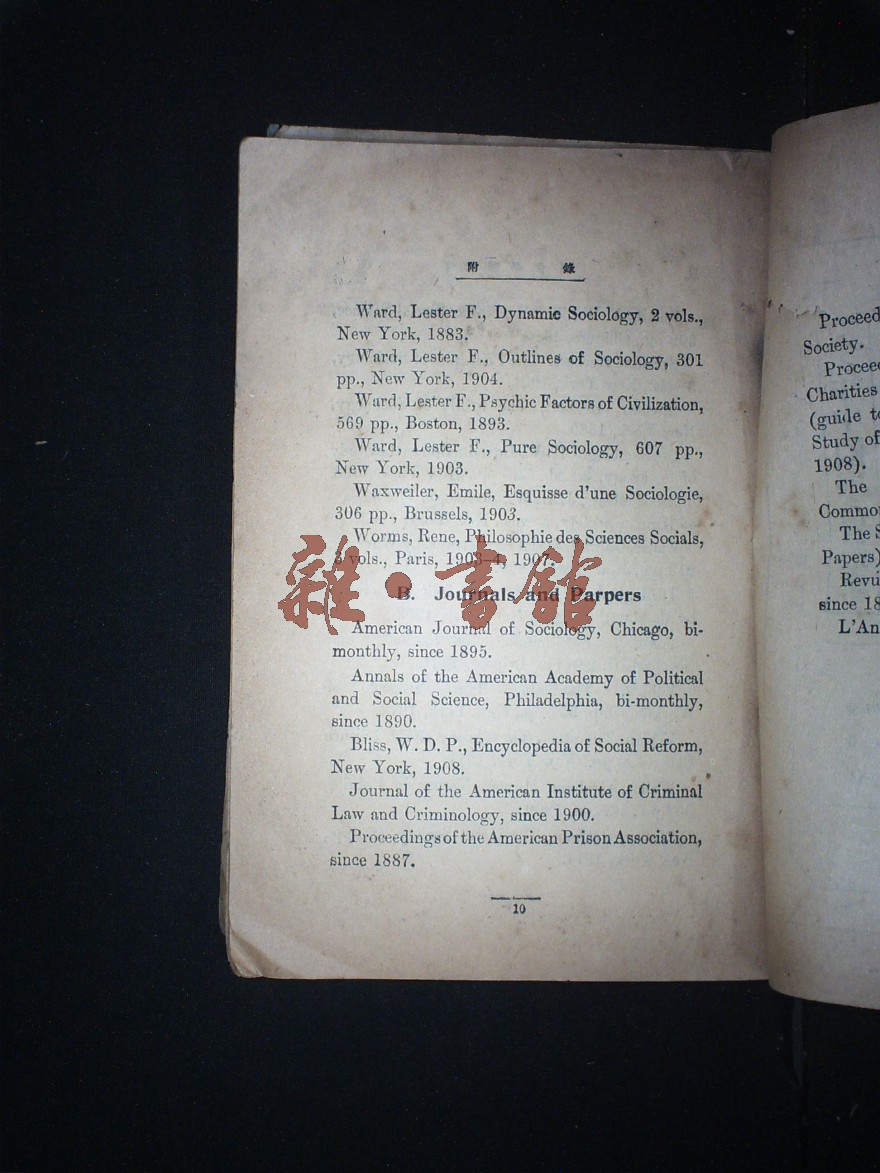 附 錄
Ward, Lester F., Dynamic Sociology, 2 vols.,
New York, 1883.
Ward, Lester F., Outlines of Sociology, 301
pp., New York, 1904.
Ward, Lester F., Psychic Factors of Civilization,
569 pp., Boston, 1893.
Ward, Lester F., Pure Sociology, 607 pp.,
New York, 1903.
Waxweiler, Emile, Esquisse d'une Sociologie,
306 pp., Brussels, 1903.
Worms, Rene, Philosophie des Sciences Socials,
3 vols., Paris, 1903-4, 1907.
B. Journals and Parpers
American Journal of Sociology, Chicago, bi-
monthly, since 1895.
Annals of the American Academy of Political
and Social Science, Philadelphia, bi-monthly,
since 1890.
Bliss, W. D. P., Encyclopedia of Social Reform,
New York, 1908.
Journal of the American Institute of Criminal
Law and Criminology, since 1900.
Proceedings of the American Prison Association,
since 1887.
10
雜·書館
Proceed
Society.
Procee
Charities
(guide t
Study of
1908).
The
Common
The S
Papers)
Revu
since 18
L'An